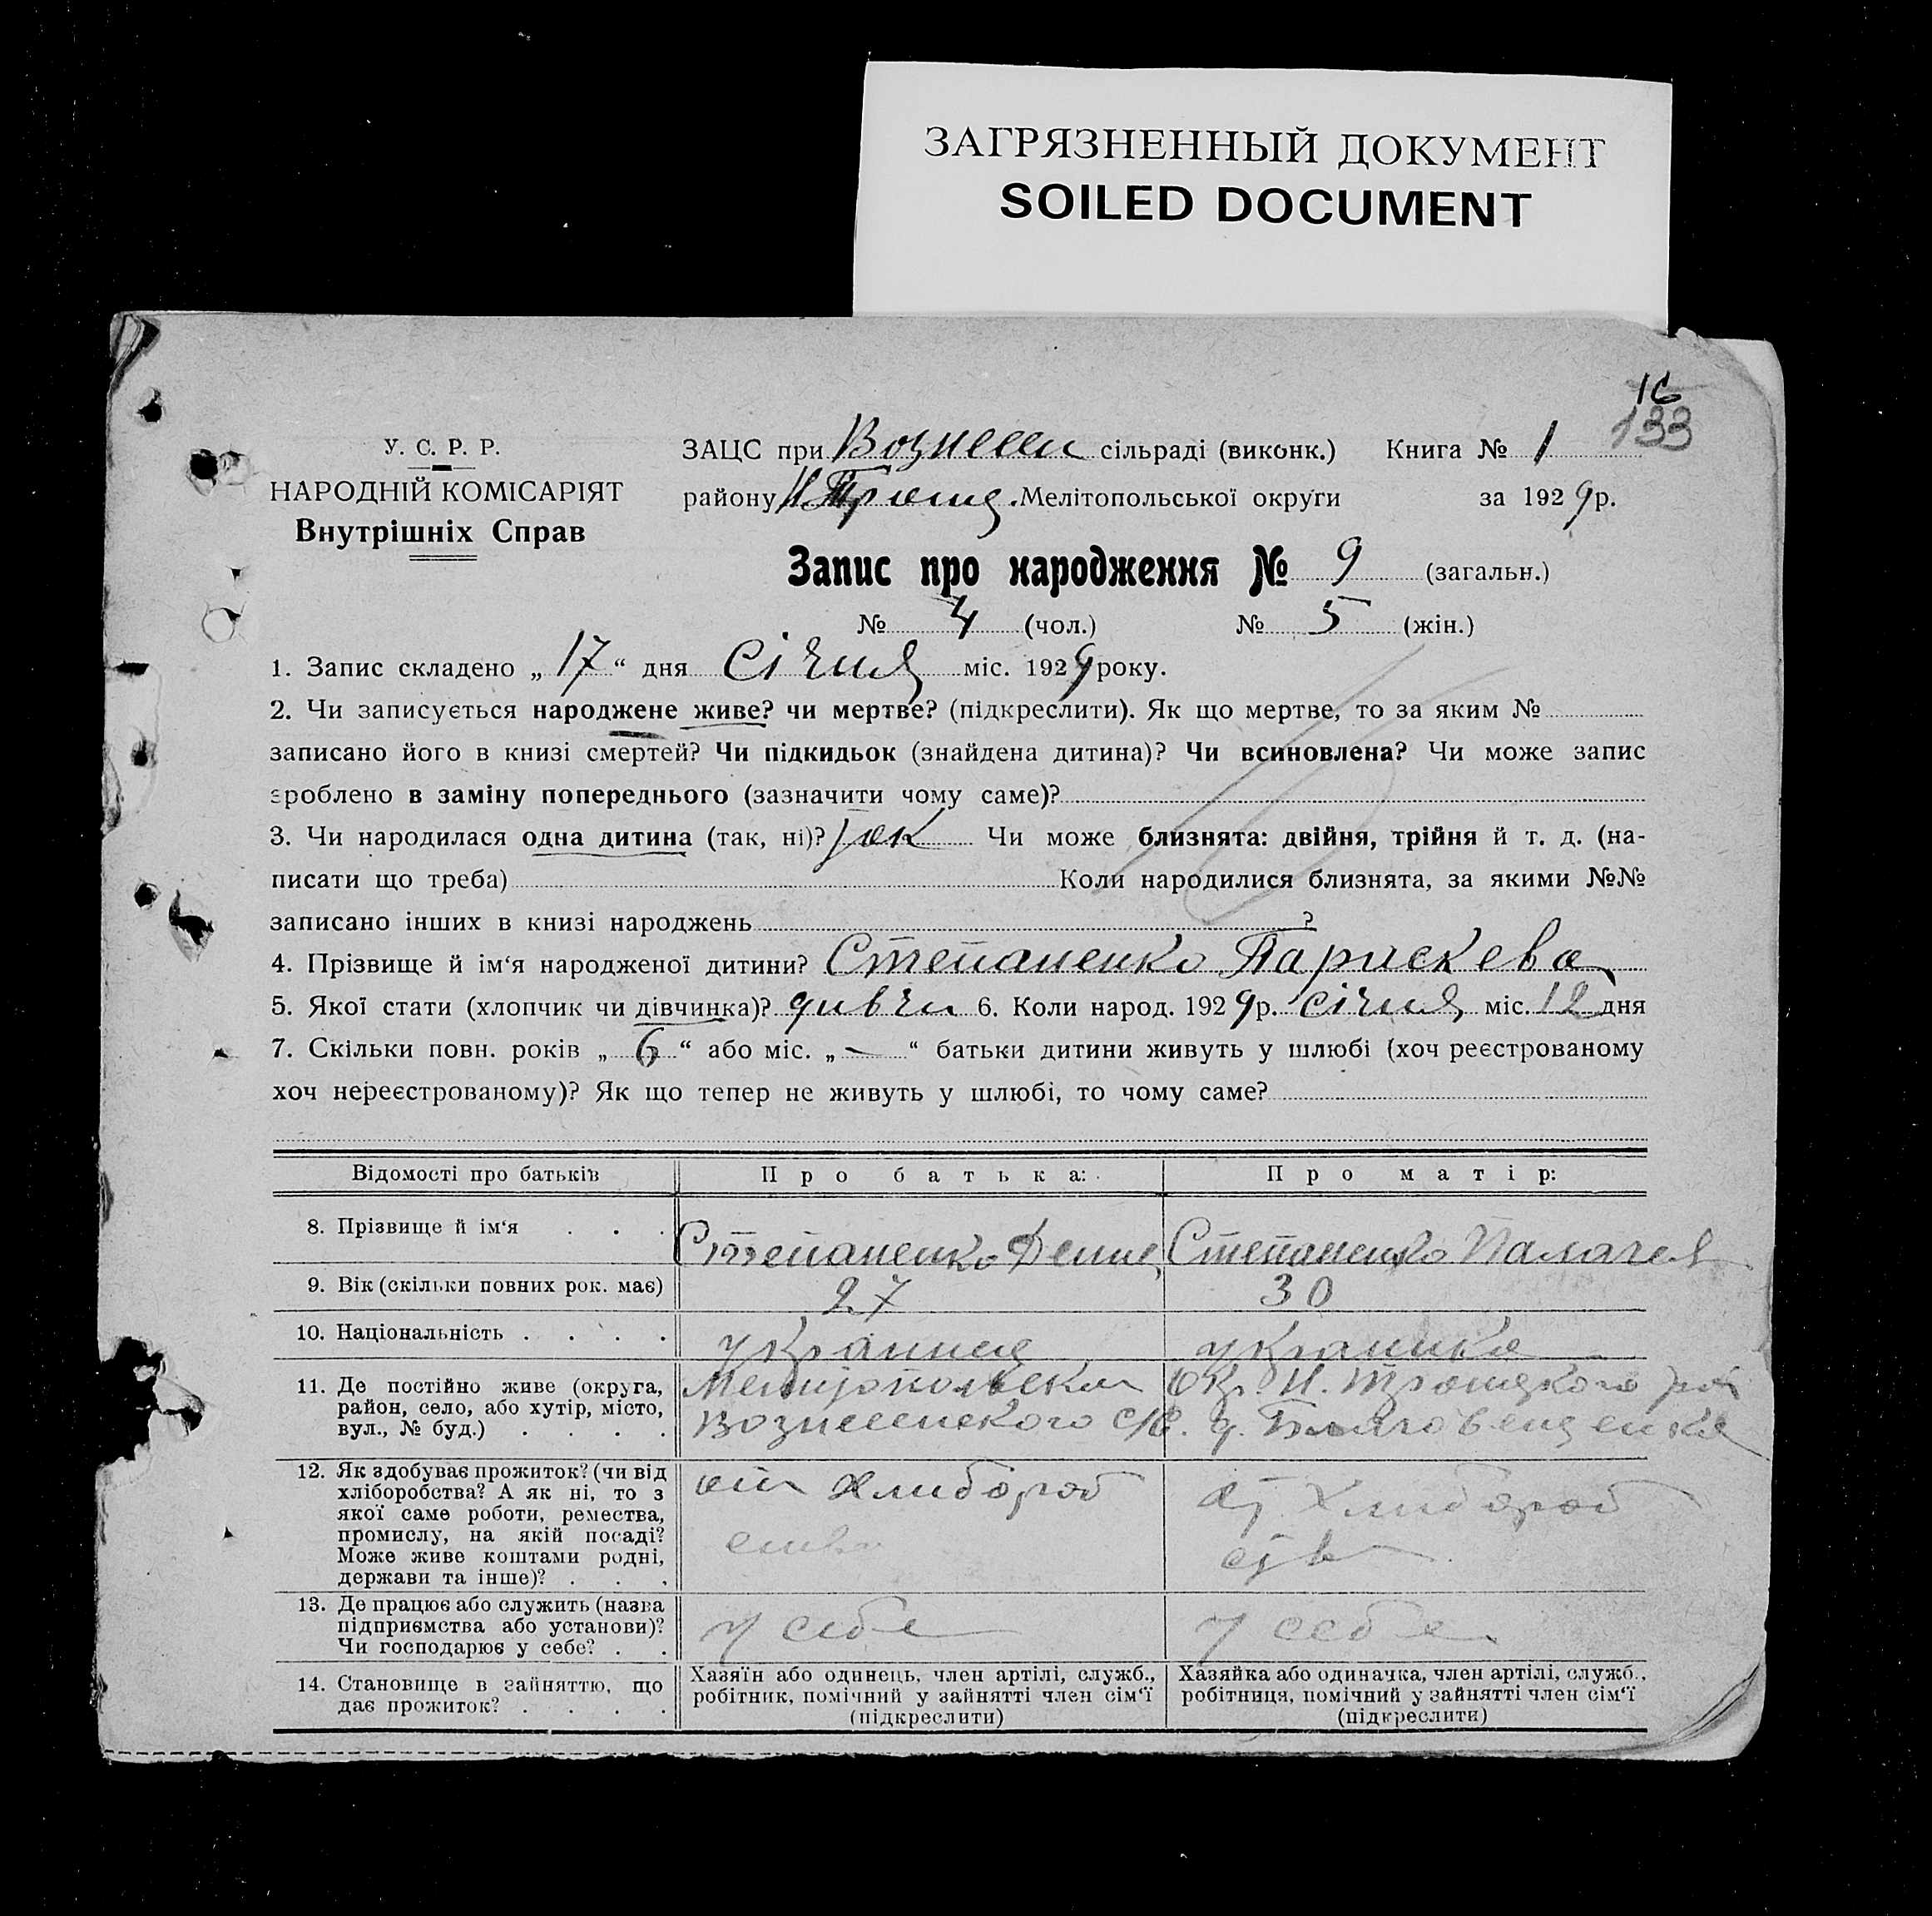 ЗАГРЯЗНЕННЫЙ ДОКУМЕНТ
SOILED DOCUMENT
16
133
У. С. Р. Р.
НАРОДНІЙ КОМІСАРІЯТ
Внутрішніх Справ
ЗАЦС при Вознесен сільраді (виконк.) Книга № 1
району Н. Троицк. Мелітопольської округи за 1929р.
Запис про народження № 9 (загальн.)
№ 4 (чол.) № 5 (жін.)
1. Запис складено „17“ дня Січня міс. 1929 року.
2. Чи записується народжене живе? чи мертве? (підкреслити). Як що мертве, то за яким №
записано його в книзі смертей? Чи підкидьок (знайдена дитина)? Чи всиновлена? Чи може запис
зроблено в заміну попереднього (зазначити чому саме)?
3. Чи народилася одна дитина (так, ні)? так Чи може близнята: двійня, трійня й т. д. (на-
писати що треба) Коли народилися близнята, за якими №№
записано інших в книзі народжень ?
4. Прізвище й ім‘я народженої дитини? Степаненко Параскева
5. Якої стати (хлопчик чи дівчинка)? дивчи 6. Коли народ. 1929р. січня міс. 12 дня
7. Скільки повн. років „6“ або міс. „—“ батьки дитини живуть у шлюбі (хоч реєстрованому
хоч нереєстрованому)? Як що тепер не живуть у шлюбі, то чому саме?
Відомості про батьків Про батька: Про матір:
8. Прізвище й ім‘я . . . Степаненко Денис Степаненко Палагея
9. Вік (скільки повних рок. має) 27 30
10. Національність . . . . украинец украинка
11. Де постійно живе (округа, район, село, або хутір, місто, вул., № буд.) . . . .
Мелитопольской Окр. Н. Троицкого рай
Вознесенского с/с. д. Благовещенка
12. Як здобуває прожиток? (чи від
хліборобства? А як ні, то з
якої саме роботи, ремества,
промислу, на якій посаді?
Може живе коштами родні,
держави та інше)? . . .
от хлибороб
ства
от хлибороб
ства
13. Де працює або служить (назва
підприємства або установи)?
Чи господарює у себе? . .
у себе у себе
14. Становище в зайняттю, що
дає прожиток? . . . .
Хазяїн або одинець, член артілі, служб.,
робітник, помічний у зайнятті член сім‘ї
(підкреслити)
Хазяйка або одиначка, член артілі, служб.,
робітниця, помічний у зайнятті член сім‘ї
(підкреслити)